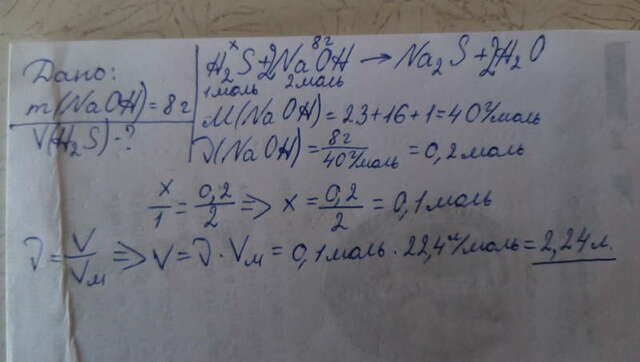 Дано:
m(NaOH)=8г
V(H₂S)-?
x 8г
H₂S+2NaOH → Na₂S+2H₂O
1моль 2моль
M(NaOH)=23+16+1=40г/моль
ν(NaOH)= 8г/40г/моль =0,2моль
x/1=0,2/2 => x=0,2/2=0,1моль
ν=V/Vм => V=ν·Vм=0,1моль·22,4л/моль=2,24л.